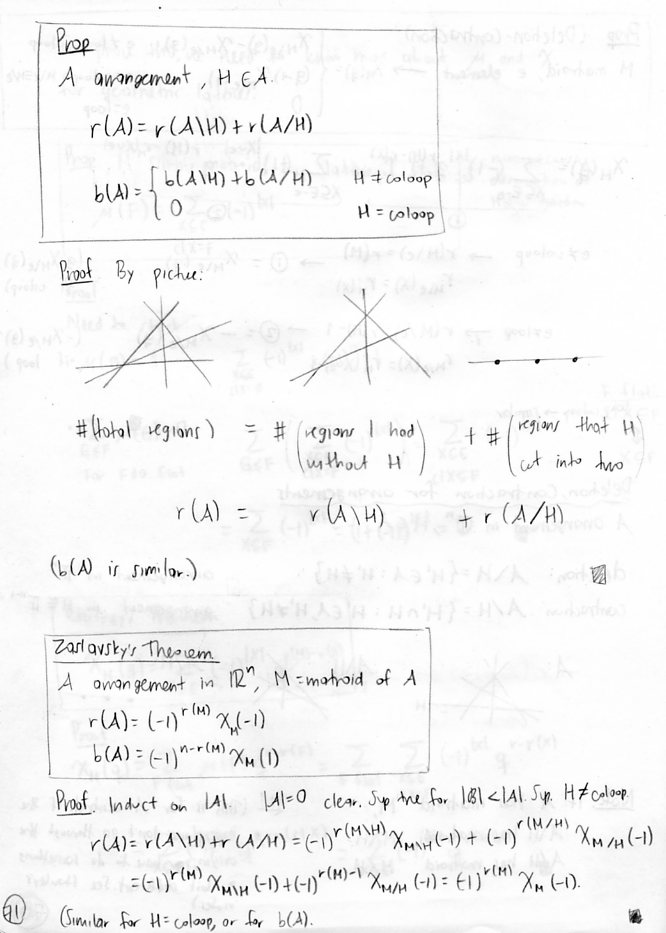 Prop
A arrangement, H∈A.
r(A) = r(A\H) + r(A/H)
b(A) = { b(A\H) + b(A/H) H ≠ coloop
0 H = coloop
Proof. By picture:
#(total regions) = # (regions I had without H) + # (regions that H cut into two)
r(A) = r(A\H) + r(A/H)
(b(A) is similar.)
Zaslavsky's Theorem.
A arrangement in ℝⁿ, M = matroid of A
r(A) = (-1)^{r(M)} χ_M(-1)
b(A) = (-1)^{n-r(M)} χ_M(1)
Proof. Induct on |A|. |A|=0 clear. Sup true for |B|<|A|. Sup. H≠coloop.
r(A) = r(A\H) + r(A/H) = (-1)^{r(M\H)} χ_{M\H}(-1) + (-1)^{r(M/H)} χ_{M/H}(-1)
= (-1)^{r(M)} χ_{M\H}(-1) + (-1)^{r(M)-1} χ_{M/H}(-1) = (-1)^{r(M)} χ_M(-1).
(Similar for H=coloop, or for b(A).
71